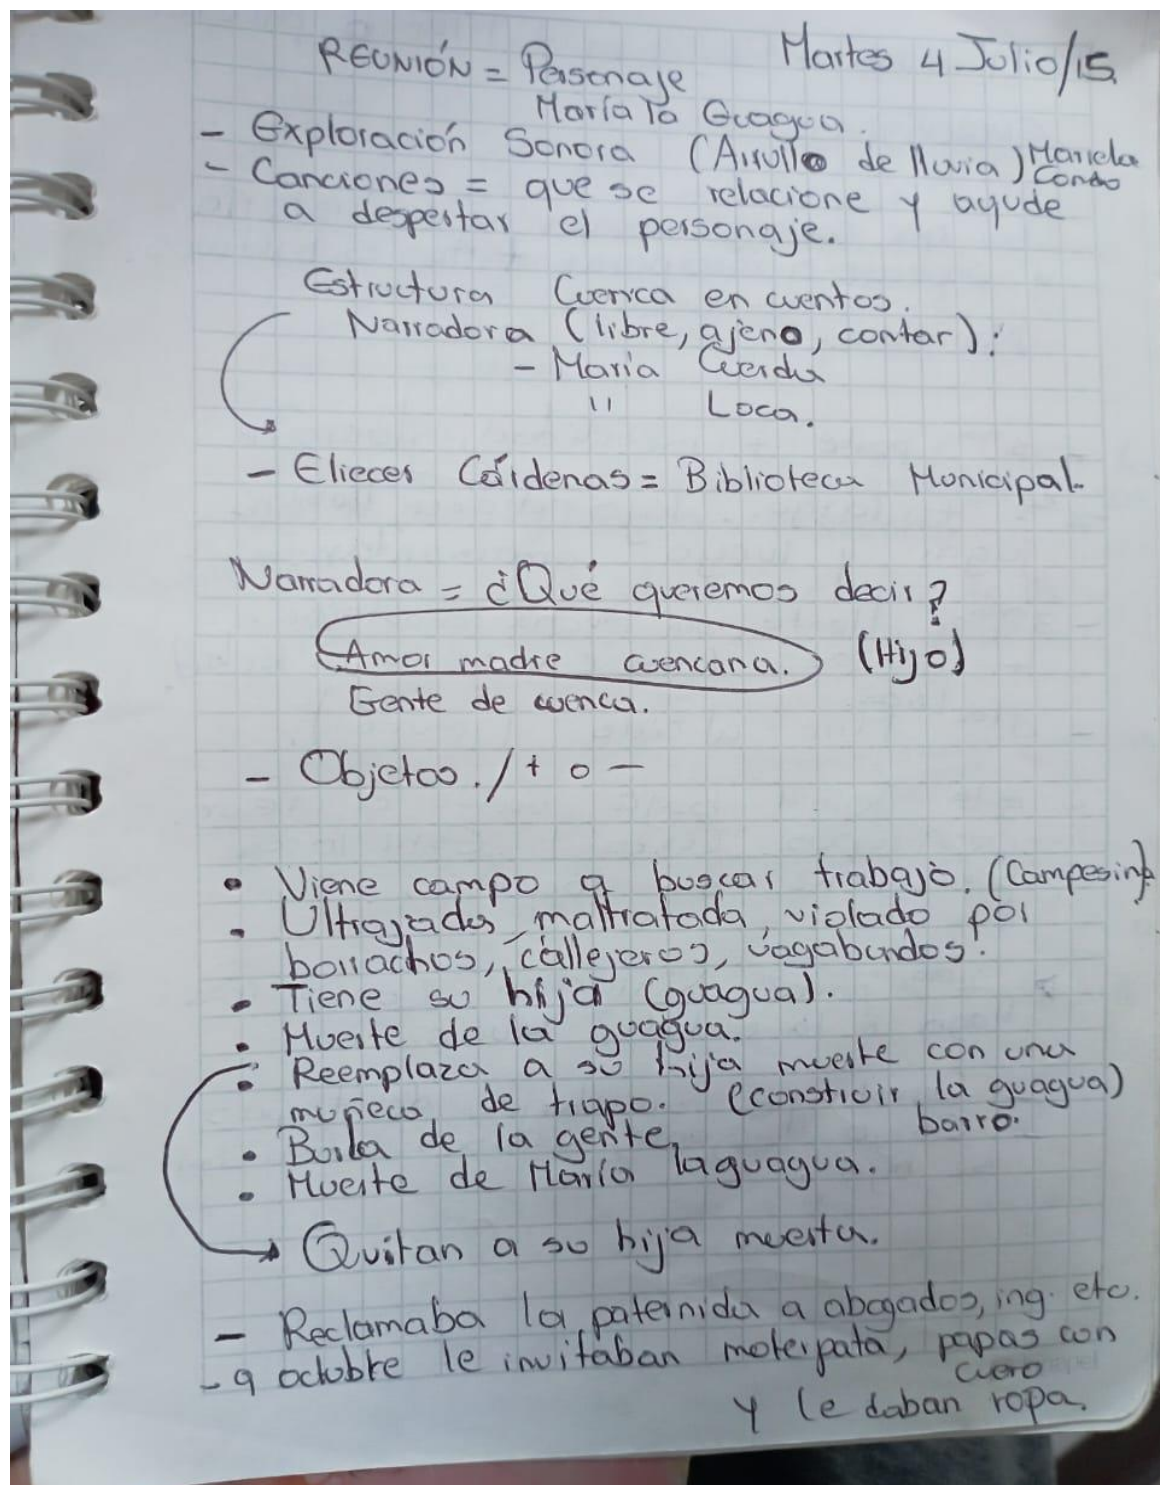 REUNIÓN = Personaje Martes 4 Julio/15
María la Guagua.
- Exploración Sonora (Arrullo de lluvia) Mariela Condo
- Canciones = que se relacione y ayude
a despertar el personaje.
Estructura Cuenca en cuentos.
Narradora (libre, ajeno, contar):
- María Cuerda
" Loca.
- Elieces Cárdenas = Biblioteca Municipal.
Narradora = ¿Qué queremos decir?
Amor madre cuencana. (Hijo)
Gente de cuenca.
- Objetos. / + o -
• Viene campo a buscar trabajo. (Campesina)
• Ultrajada, maltratada, violado por
borrachos, callejeros, vagabundos.
• Tiene su hija (guagua).
• Muerte de la guagua.
• Reemplaza a su hija muerte con una
muñeca de trapo. (construir la guagua)
barro.
• Burla de la gente.
• Muerte de María laguagua.
Quitan a su hija muerta.
- Reclamaba la paternida a abogados, ing. etc.
- 9 octubre le invitaban motepata, papas con
cuero
y le daban ropa.